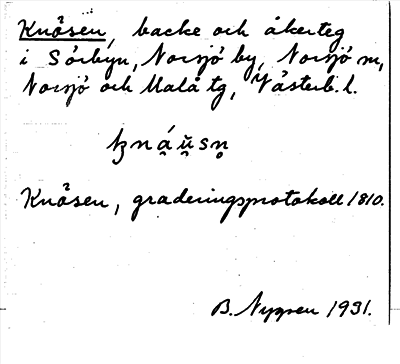 Knösen, backe och åkerteg
i Sörbyn, Norsjö by, Norsjö sn,
Norsjö och Malå tg, Västerb. l.
Knösen, graderingsprotokoll 1810.
B. Nygren 1931.